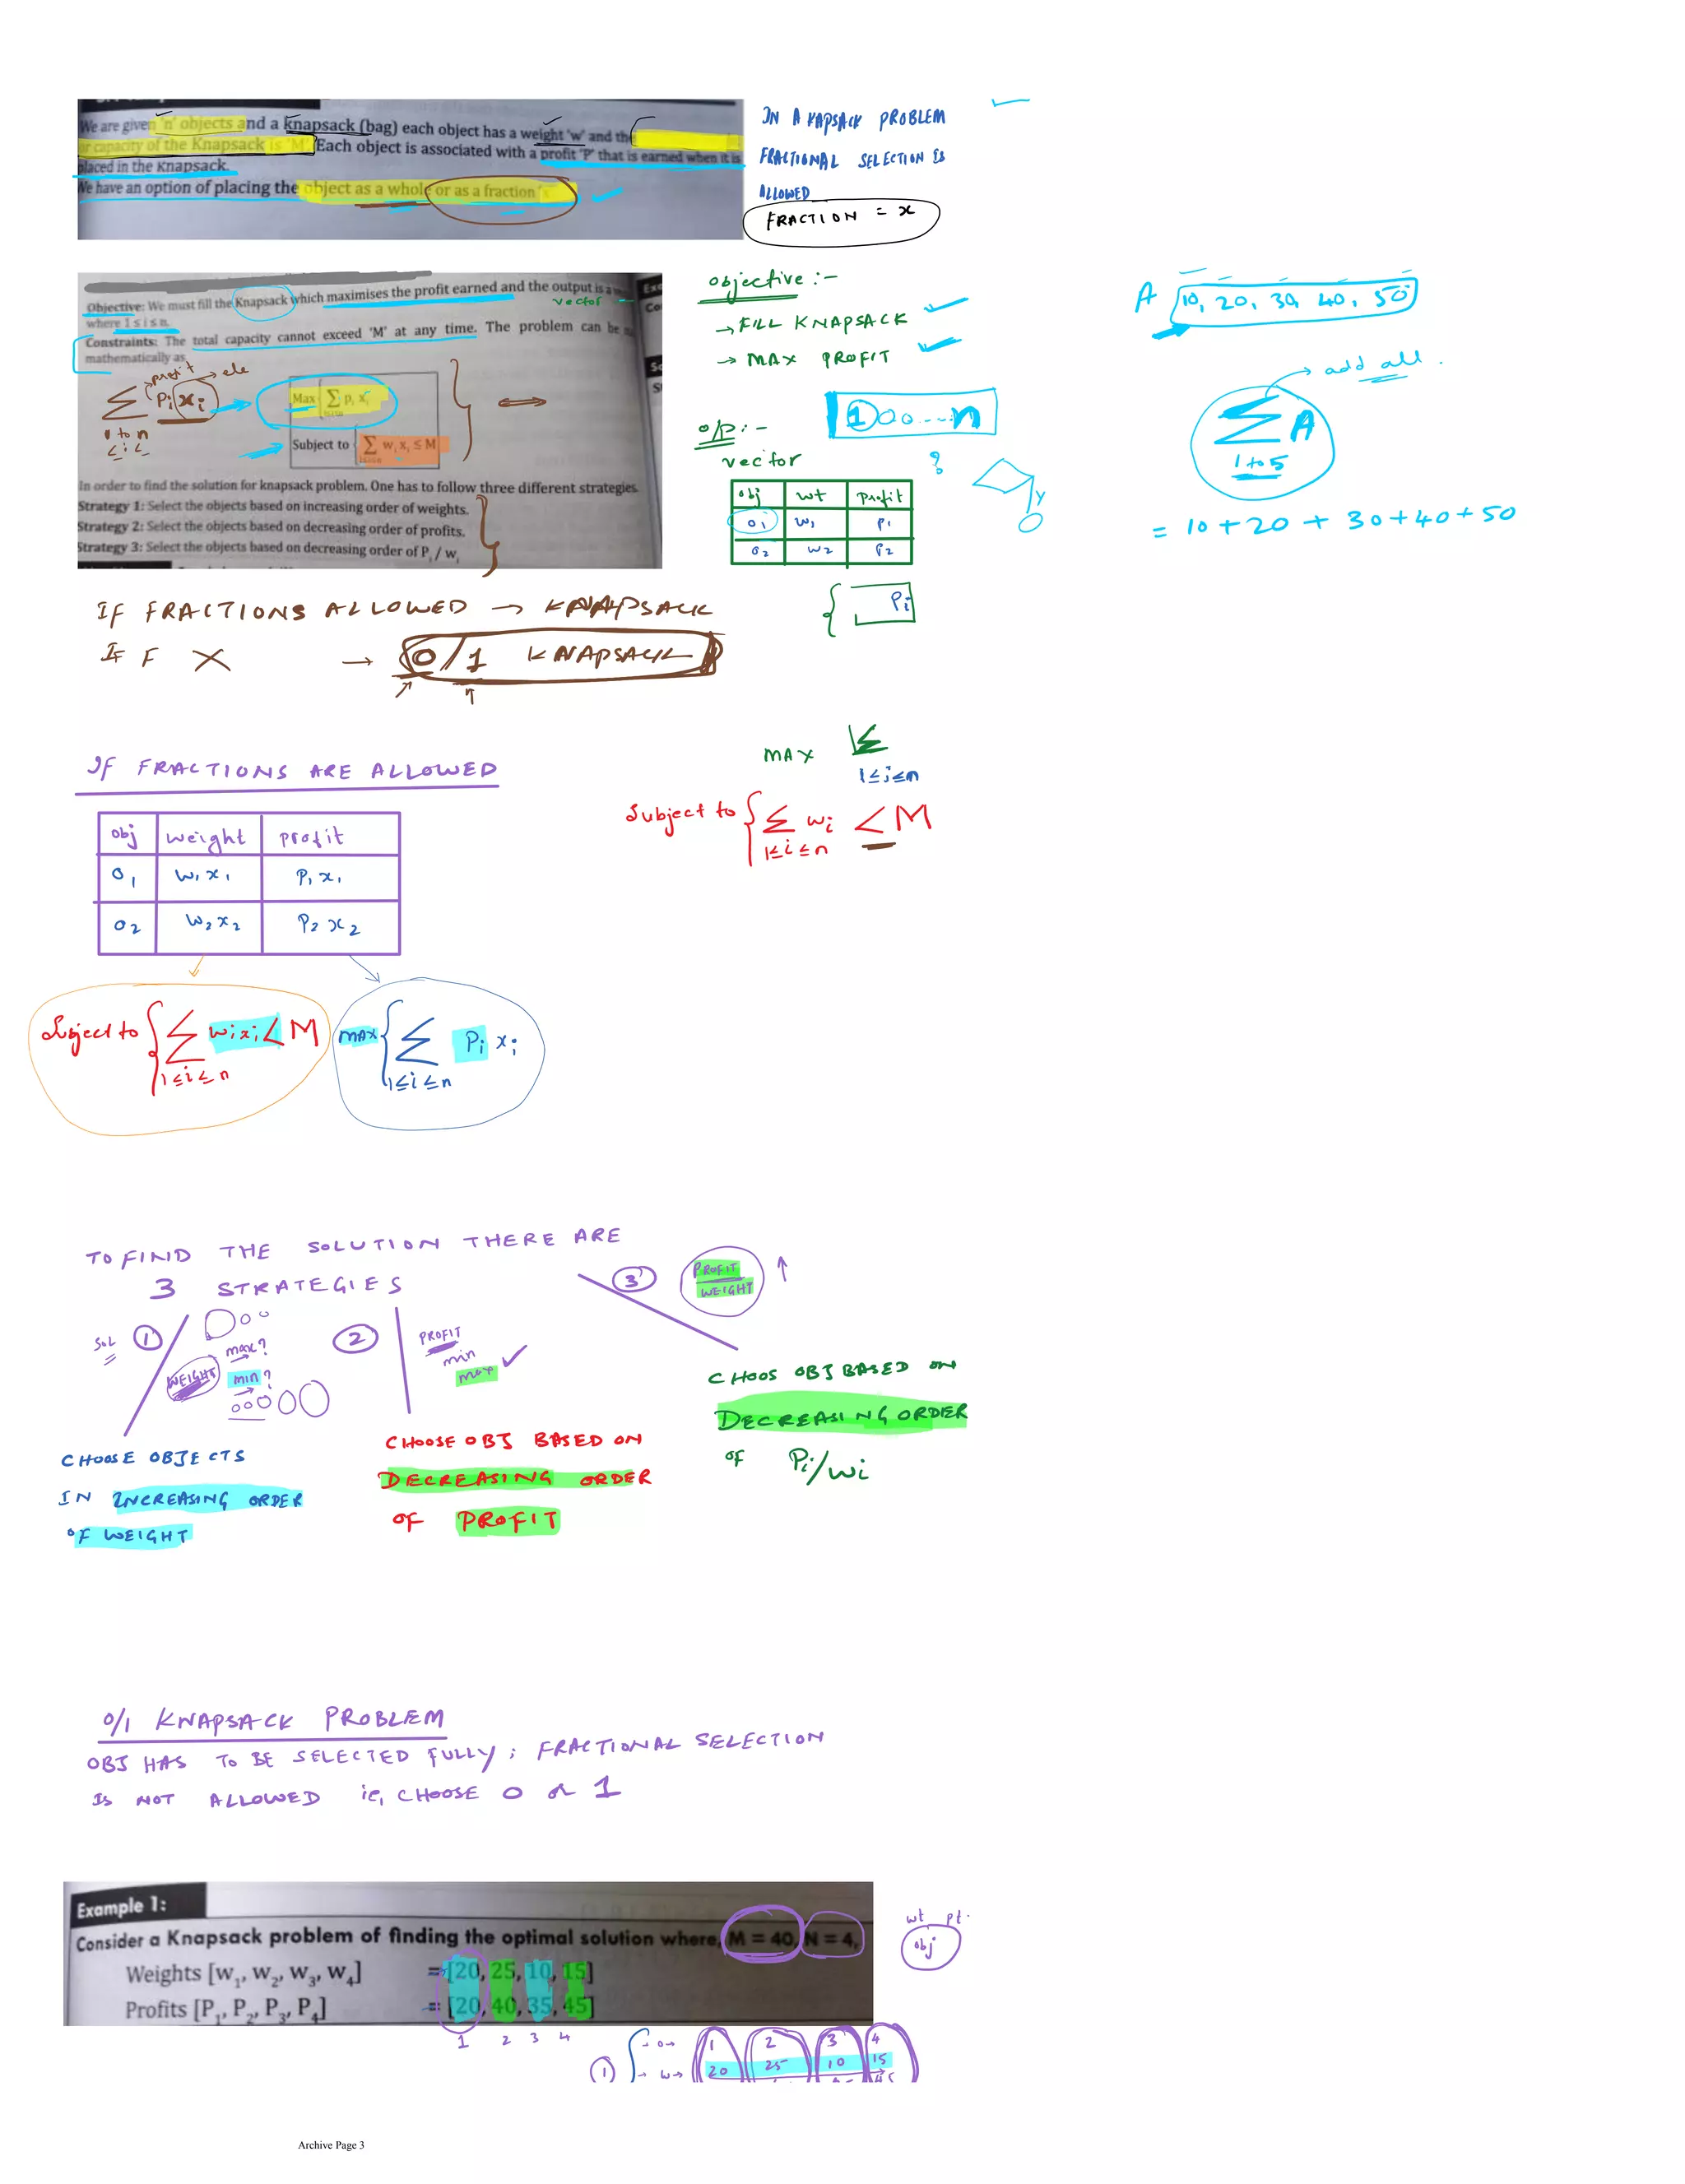 We are given 'n' objects and a knapsack (bag) each object has a weight 'w' and the
or capacity of the Knapsack is 'M'. Each object is associated with a profit 'P' that is earned when it is
placed in the Knapsack.
We have an option of placing the object as a whole or as a fraction 'x'
IN A KAPSACK PROBLEM
FRACTIONAL SELECTION IS
ALLOWED
FRACTION = x
Objective: We must fill the Knapsack which maximises the profit earned and the output is a
vector
where 1 ≤ i ≤ n.
Constraints: The total capacity cannot exceed 'M' at any time. The problem can be
mathematically as
profit ele
∑ Pi xi
1 to n
≤ i ≤
Max ∑ pi xi
1≤i≤n
Subject to ∑ wi xi ≤ M
1≤i≤n
In order to find the solution for knapsack problem. One has to follow three different strategies.
Strategy 1: Select the objects based on increasing order of weights.
Strategy 2: Select the objects based on decreasing order of profits.
Strategy 3: Select the objects based on decreasing order of Pi / wi
objective :-
→ FILL KNAPSACK
→ MAX PROFIT
1 0 0 .... n
o/p :-
vector
?
y
obj wt profit
o1 w1 p1
o2 w2 p2
Pi
A 10, 20, 30, 40, 50
→ add all .
∑ A
1 to 5
= 10 + 20 + 30 + 40 + 50
IF FRACTIONS ALLOWED → KNAPSACK
IF F X → 0/1 KNAPSACK
MAX ∑
1≤i≤n
Subject to { ∑ wi < M
1≤i≤n
IF FRACTIONS ARE ALLOWED
obj weight profit
O1 w1 x1 P1 x1
O2 w2 x2 P2 x2
Subject to { ∑ wixi < M
1≤i≤n
MAX { ∑ Pi xi
1≤i≤n
TO FIND THE SOLUTION THERE ARE
3 STRATEGIES
SOL 1
max?
WEIGHT MIN?
2
PROFIT
min
max
3
PROFIT
WEIGHT ↑
CHOOSE OBJECTS
IN INCREASING ORDER
OF WEIGHT
CHOOSE OBJ BASED ON
DECREASING ORDER
OF PROFIT
CHOOS OBJ BASED ON
DECREASING ORDER
OF Pi/wi
0/1 KNAPSACK PROBLEM
OBJ HAS TO BE SELECTED FULLY; FRACTIONAL SELECTION
IS NOT ALLOWED ie, CHOOSE 0 or 1
Example 1:
Consider a Knapsack problem of finding the optimal solution where, M = 40, N = 4,
Weights [w1, w2, w3, w4] = [20, 25, 10, 15]
Profits [P1, P2, P3, P4] = [20, 40, 35, 45]
wt pt.
obj
1 2 3 4
1
→ o → 1 2 3 4
→ w → 20 25 10 15
Archive Page 3